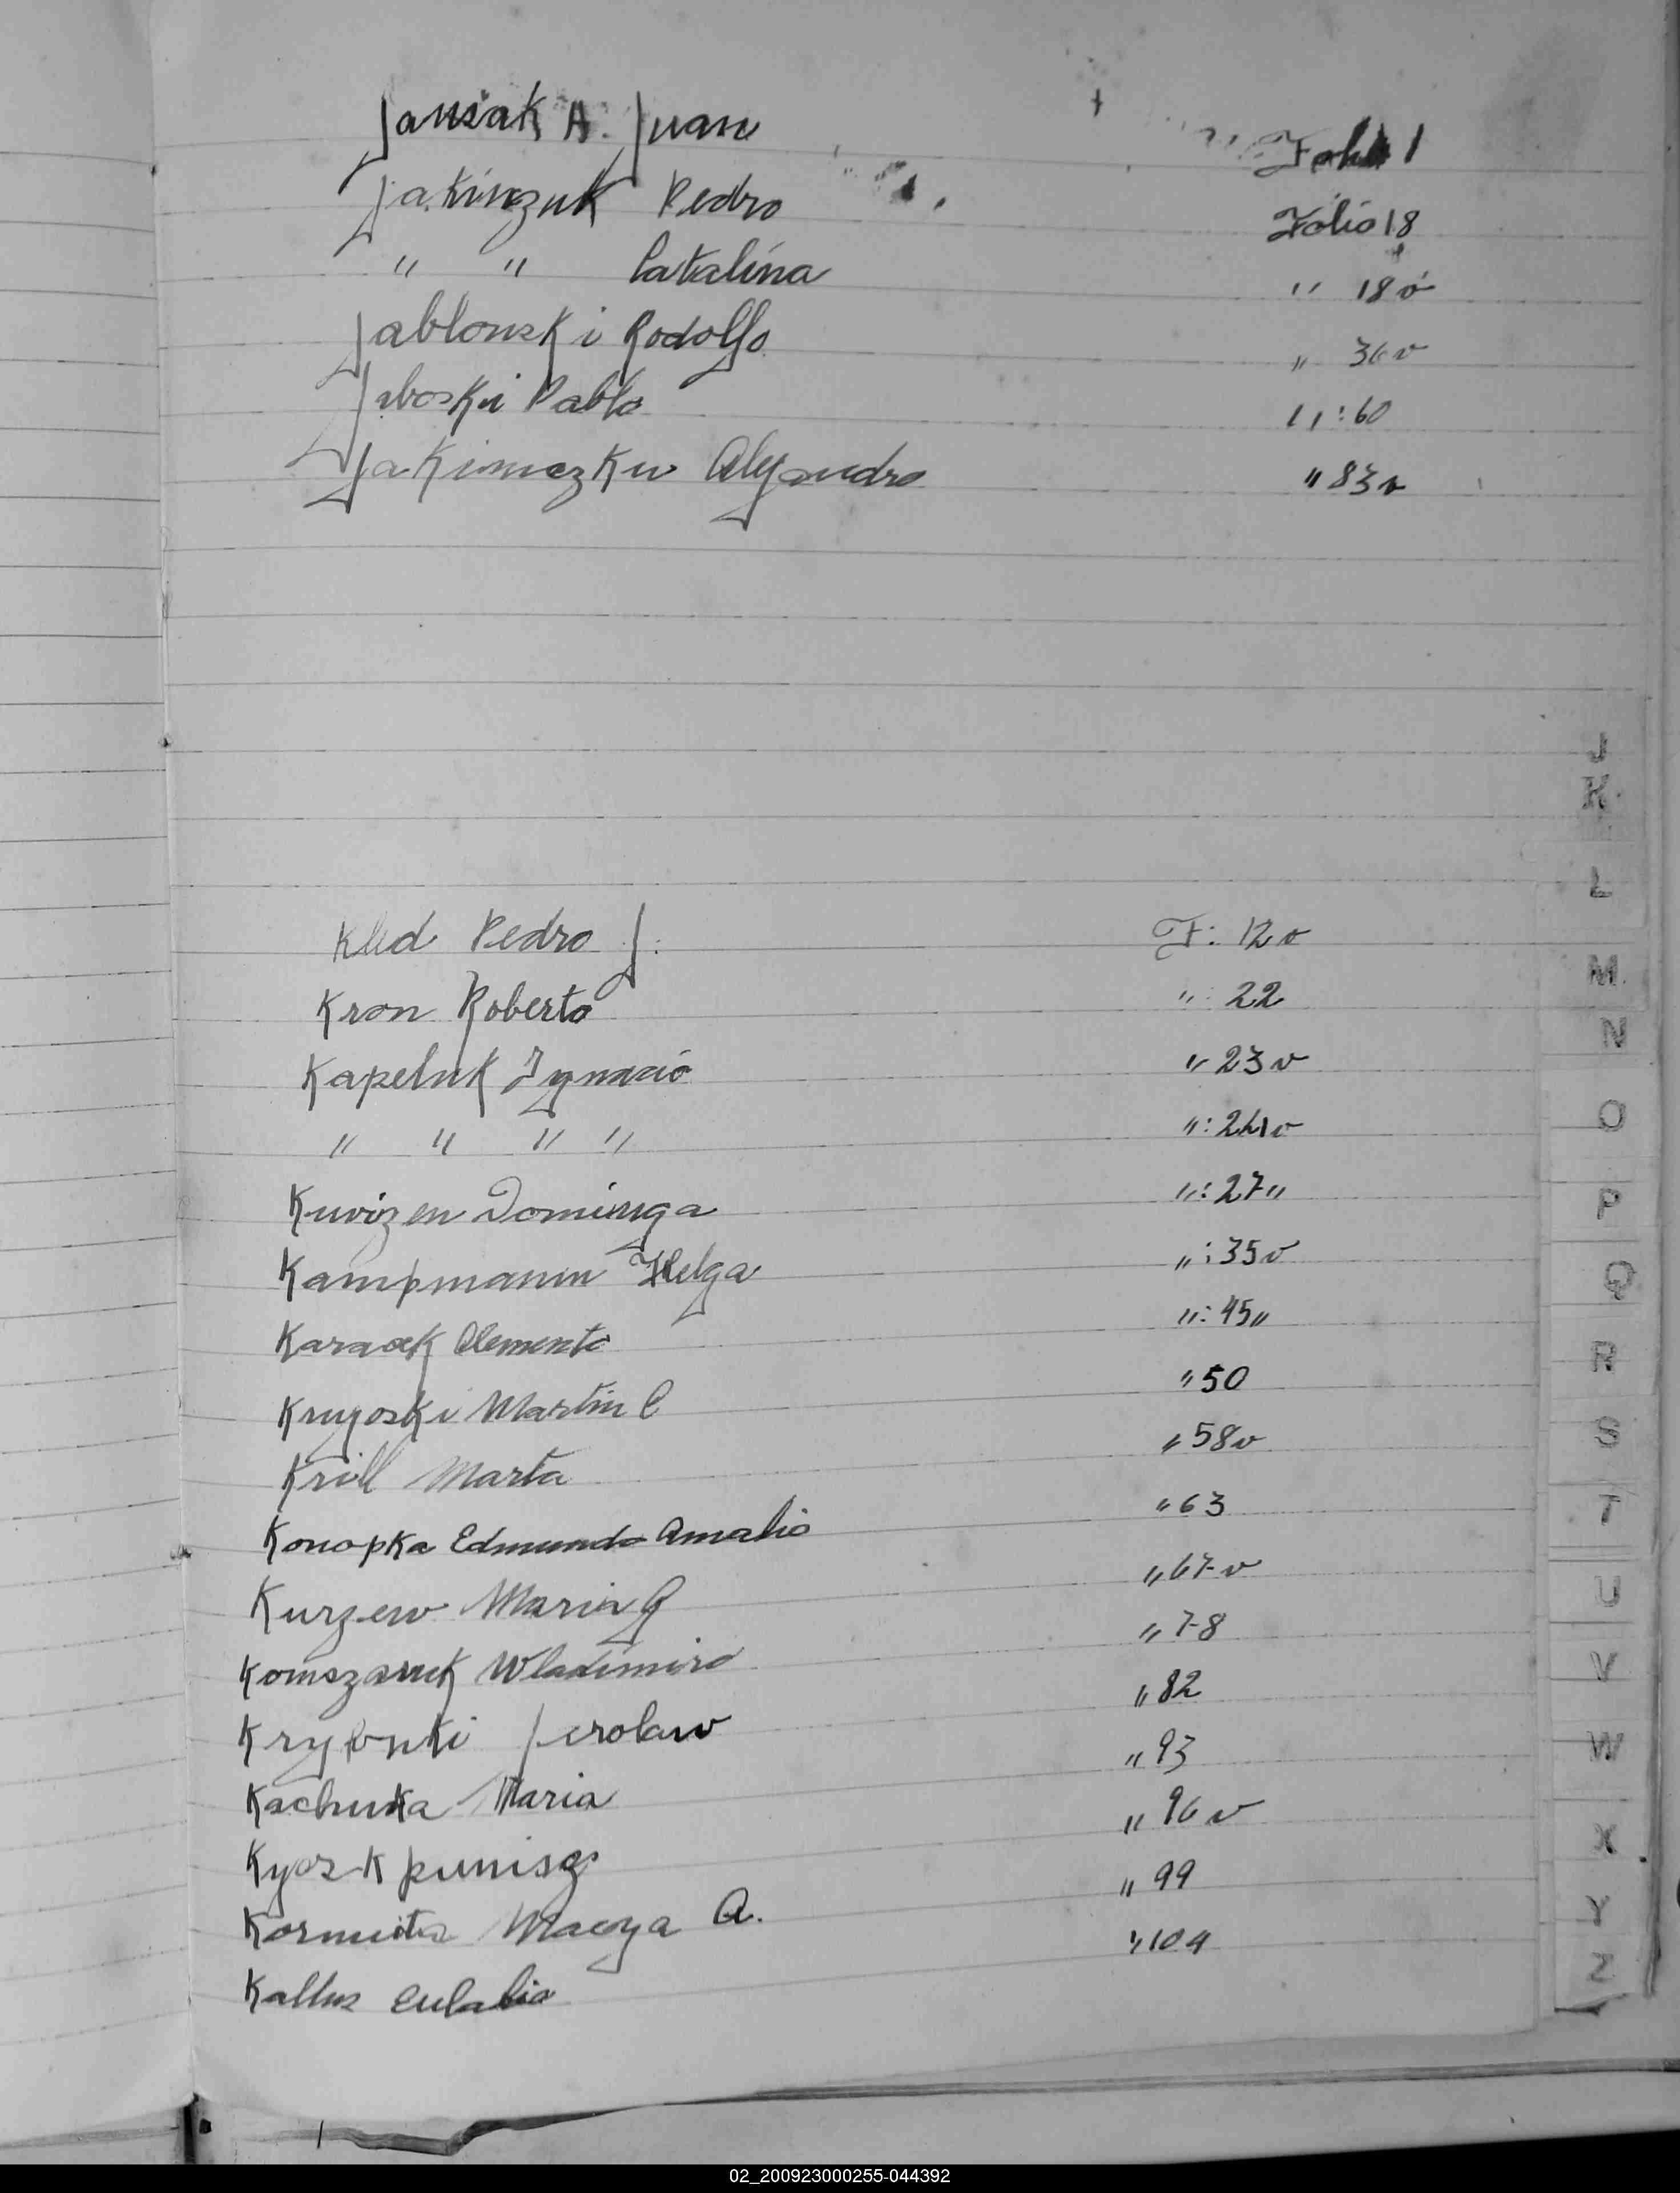 Jansak A. Juan Folio 1
Jakinzuk Pedro Folio 18
" " Catalina " 18 v
Jablonski Rodolfo " 36 v
Jaboski Pablo " : 60
Jakimezku Alejandro " 83 v
J
K
L
Klid Pedro J. F: 12 v
Kron Roberto " : 22
M
Kapeluk Ignacio " 23 v
N
" " " " " : 24 v
O
Kuvizen Dominga " : 27 "
P
Kampmann Helga " : 35 v
Q
Karasek Clemente " : 45 "
R
Krugoski Martin C " 50
S
Krill Marta " 58 v
T
Konopka Edmundo Amalio " 63
Kurzew Maria G " 67 v
U
Komszanek Wladimiro " 78
V
Jerolaw " 82
W
Kachuka Maria " 93
" 96 v
X
Kormuta A. " 99
Y
Kallus Eulalia " 104
Z
02_200923000255-044392